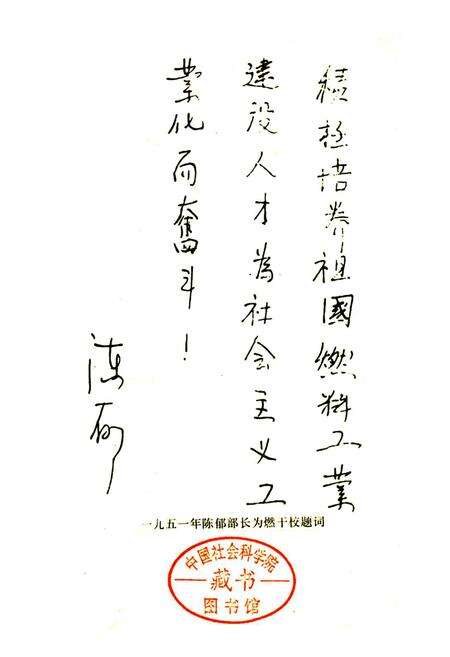 積極培养祖國燃料工業
建设人才為社会主义工
業化而奮斗！
陈郁
一九五一年陈郁部长为燃干校题词
中国社会科学院
藏书
图书馆